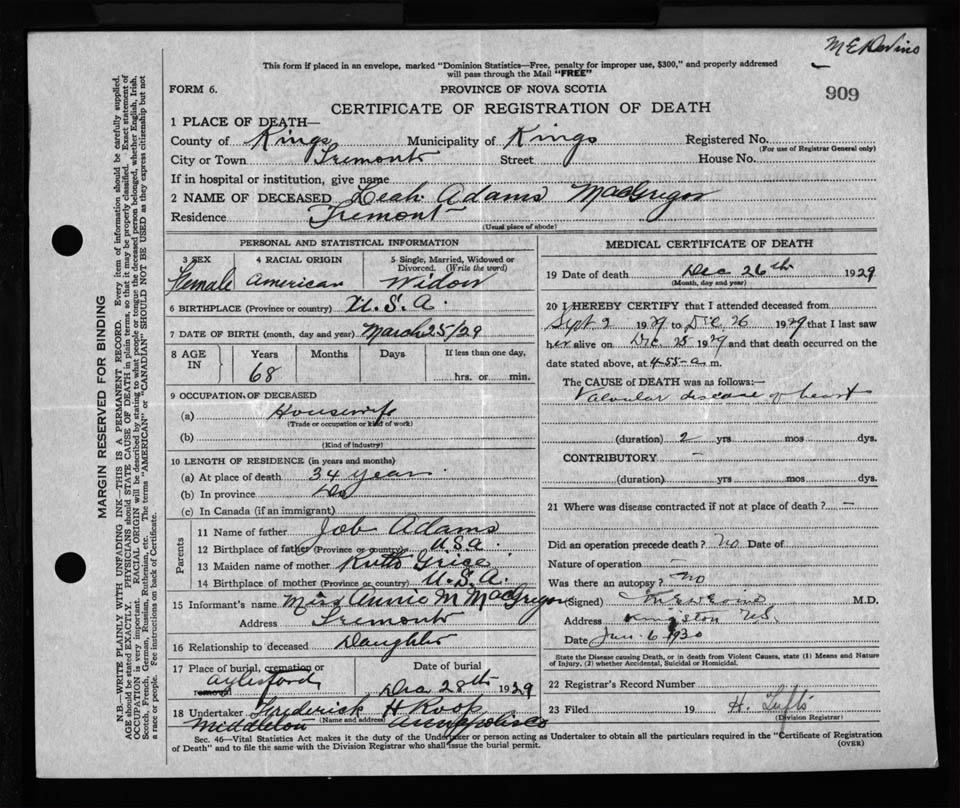 M E Devine
This form if placed in an envelope, marked "Dominion Statistics—Free, penalty for improper use, $300," and properly addressed
will pass through the Mail "FREE"
FORM 6. PROVINCE OF NOVA SCOTIA 909
CERTIFICATE OF REGISTRATION OF DEATH
1 PLACE OF DEATH—
County of Kings Municipality of Kings Registered No.
(For use of Registrar General only)
City or Town Tremont Street House No.
If in hospital or institution, give name
2 NAME OF DECEASED Leah Adams MacGregor
Residence Tremont
(Usual place of abode)
PERSONAL AND STATISTICAL INFORMATION
3 SEX 4 RACIAL ORIGIN 5 Single, Married, Widowed or
Divorced. (Write the word)
Female American Widow
6 BIRTHPLACE (Province or country) U.S.A.
7 DATE OF BIRTH (month, day and year) March 25/29
8 AGE IN Years Months Days If less than one day,
68 hrs. or min.
9 OCCUPATION OF DECEASED
(a) Housewife
(Trade or occupation or kind of work)
(b)
(Kind of industry)
10 LENGTH OF RESIDENCE (in years and months)
(a) At place of death 34 years
(b) In province Do
(c) In Canada (if an immigrant)
Parents
11 Name of father Job Adams
12 Birthplace of father (Province or country) U.S.A.
13 Maiden name of mother Ruth Grice
14 Birthplace of mother (Province or country) U.S.A.
15 Informant's name Miss Annie M MacGregor
Address Tremont
16 Relationship to deceased Daughter
17 Place of burial, cremation or removal Date of burial
Aylesford Dec 28th 1929
18 Undertaker Frederick H Roop
(Name and address)
Middleton Annapolis Co
MEDICAL CERTIFICATE OF DEATH
19 Date of death Dec 26th 1929
(Month, day and year)
20 I HEREBY CERTIFY that I attended deceased from
Sept 2 1929 to Dec 26 1929 that I last saw
her alive on Dec 25 1929 and that death occurred on the
date stated above, at 4-55-a m.
The CAUSE of DEATH was as follows:—
Valvular disease of heart
(duration) 2 yrs mos dys.
CONTRIBUTORY –
(duration) yrs mos dys.
21 Where was disease contracted if not at place of death? –
Did an operation precede death? No Date of
Nature of operation –
Was there an autopsy? No
(Signed) M.D.
Address Kingston N.S.
Date Jan. 6 1930
State the Disease causing Death, or in death from Violent Causes, state (1) Means and Nature
of Injury, (2) whether Accidental, Suicidal or Homicidal.
22 Registrar's Record Number
23 Filed 19 H. Tufts
(Division Registrar)
Sec. 46—Vital Statistics Act makes it the duty of the Undertaker or person acting as Undertaker to obtain all the particulars required in the "Certificate of Registration
of Death" and to file the same with the Division Registrar who shall issue the burial permit. (OVER)
MARGIN RESERVED FOR BINDING
N.B.—WRITE PLAINLY WITH UNFADING INK—THIS IS A PERMANENT RECORD. Every item of information should be carefully supplied.
AGE should be stated EXACTLY. PHYSICIANS should STATE CAUSE OF DEATH in plain terms, so that it may be properly classified. Exact statement of
OCCUPATION is very important. RACIAL ORIGIN will be described by stating to what people or tongue the deceased person belonged, whether English, Irish,
Scotch, French, German, Russian, Ruthenian, etc. The terms "AMERICAN" or "CANADIAN" SHOULD NOT BE USED as they express citizenship but not
a race or people. See instructions on back of Certificate.